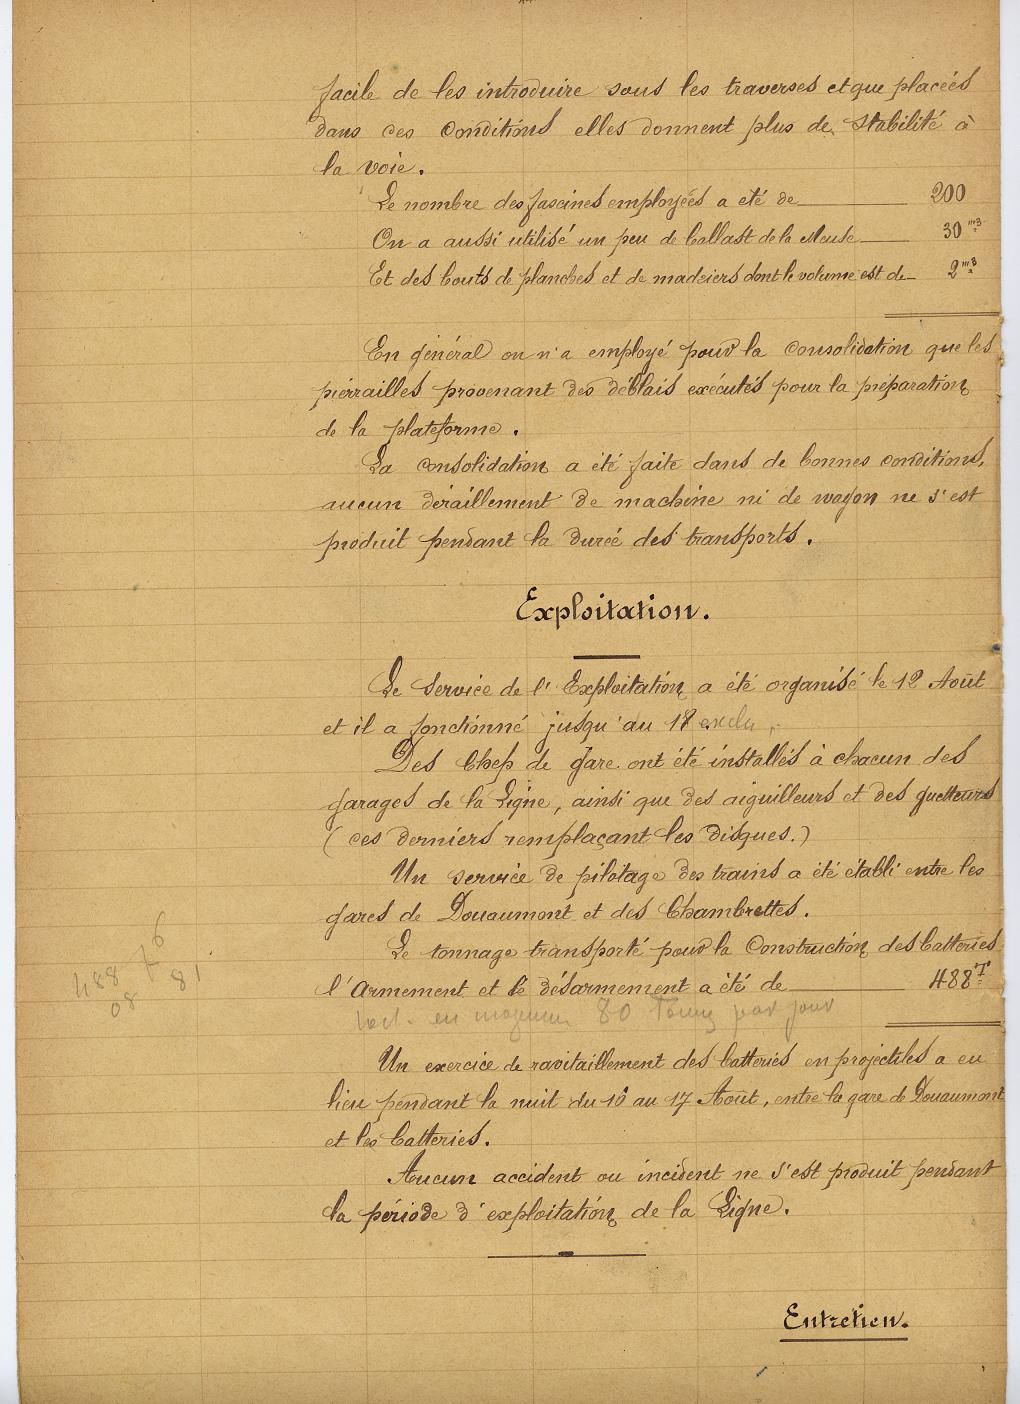 facile de les introduire sous les traverses et que placées
dans ces conditions elles donnent plus de stabilité à
la voie.
Le nombre des fascines employées a été de 200
On a aussi utilisé un peu de ballast de la Meuse 30 m3
Et des bouts de planches et de madriers dont le volume est de 2 m3
En général on n'a employé pour la consolidation que les
pierrailles provenant des déblais exécutés pour la préparation
de la plateforme.
La consolidation a été faite dans de bonnes conditions,
aucun déraillement de machine ni de wagon ne s'est
produit pendant la durée des transports.
Exploitation.
Le Service de l'Exploitation a été organisé le 12 Août
et il a fonctionné jusqu'au 18 exclu.
Des Chefs de gare ont été installés à chacun des
garages de la Ligne, ainsi que des aiguilleurs et des guetteurs
(ces derniers remplaçant les disques.)
Un service de pilotage des trains a été établi entre les
gares de Douaumont et des Chambrettes.
Le tonnage transporté pour la Construction des batteries
l'armement et le désarmement a été de 488 T
488 76
08 81
soit en moyenne 80 Tonnes par jour
Un exercice de ravitaillement des batteries en projectiles a eu
lieu pendant la nuit du 16 au 17 Août, entre la gare de Douaumont
et les batteries.
Aucun accident ou incident ne s'est produit pendant
la période d'exploitation de la Ligne.
Entretien.